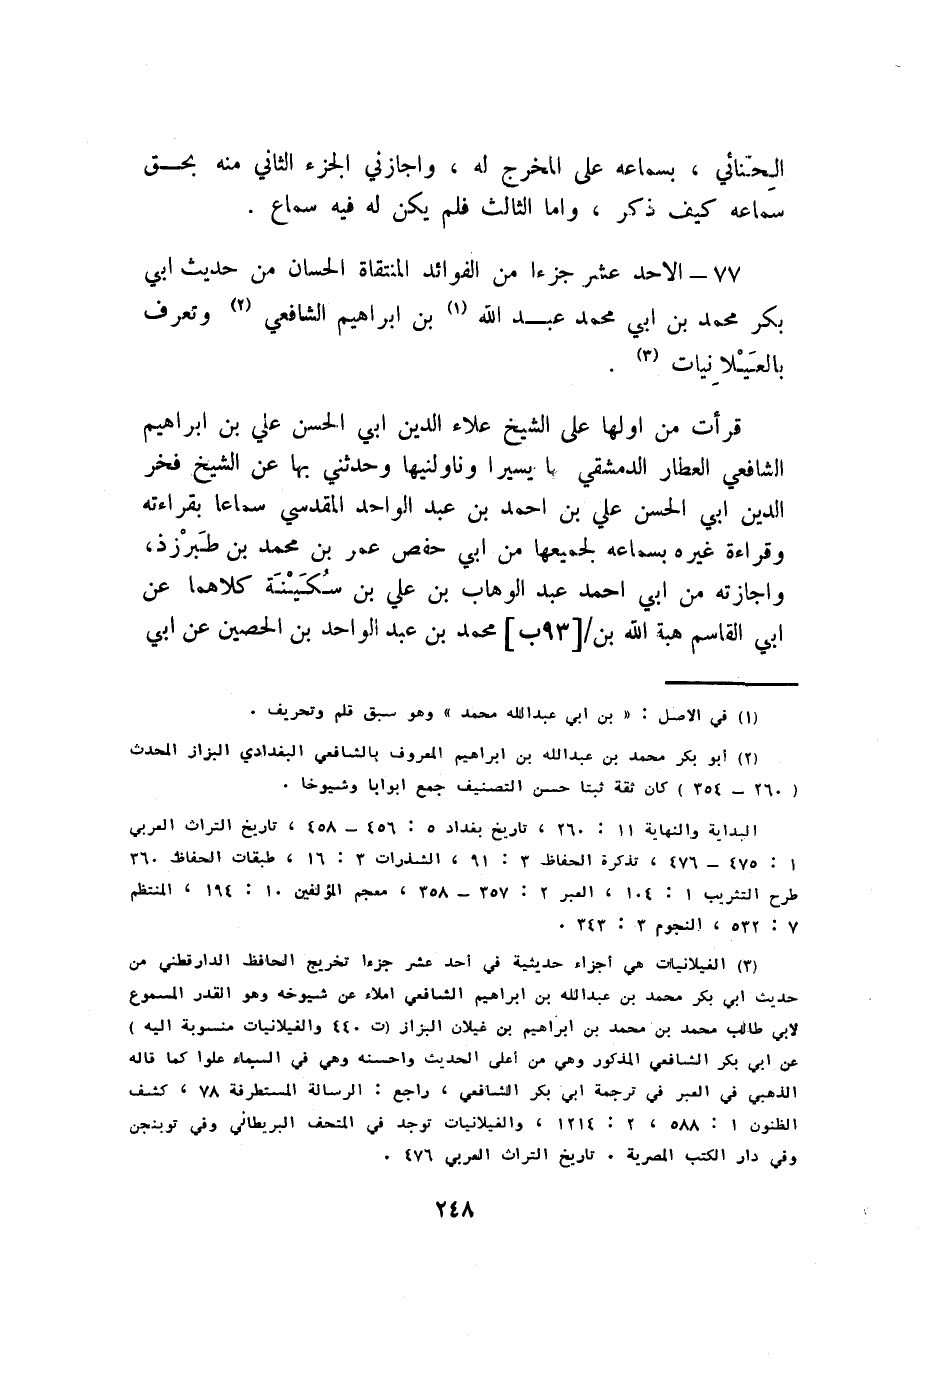 الحِنّائي ، بسماعه على المخرج له ، واجازني الجزء الثاني منه بحـــق
سماعه كيف ذكر ، واما الثالث فلم يكن له فيه سماع .
٧٧ – الاحد عشر جزءا من الفوائد المنتقاة الحسان من حديث ابي
بكر محمد بن ابي محمد عبـــد الله (١) بن ابراهيم الشافعي (٢) وتعرف
بالغَيْلانِيات (٣) .
قرأت من اولها على الشيخ علاء الدين ابي الحسن علي بن ابراهيم
الشافعي العطار الدمشقي يسيرا وناولنيها وحدثني بها عن الشيخ فخر
الدين ابي الحسن علي بن احمد بن عبد الواحد المقدسي سماعا بقراءته
وقراءة غيره بسماعه لجميعها من ابي حفص عمر بن محمد بن طَبَرْزذ،
واجازته من ابي احمد عبد الوهاب بن علي بن سُكَيْنَة كلاهما عن
ابي القاسم هبة الله بن/[٩٣ب] محمد بن عبد الواحد بن الحصين عن ابي
(١) في الاصل : « بن ابي عبدالله محمد » وهو سبق قلم وتحريف .
(٢) أبو بكر محمد بن عبدالله بن ابراهيم المعروف بالشافعي البغدادي البزاز المحدث
( ٢٦٠ – ٣٥٤ ) كان ثقة ثبتا حسن التصنيف جمع ابوابا وشيوخا .
البداية والنهاية ١١ : ٢٦٠ ، تاريخ بغداد ٥ : ٤٥٦ – ٤٥٨ ، تاريخ التراث العربي
١ : ٤٧٥ – ٤٧٦ ، تذكرة الحفاظ ٣ : ٩١ ، الشذرات ٣ : ١٦ ، طبقات الحفاظ ٣٦٠
طرح التثريب ١ : ١٠٤ ، العبر ٢ : ٣٥٧ – ٣٥٨ ، معجم المؤلفين ١٠ : ١٩٤ ، المنتظم
٧ : ٥٣٢ ، النجوم ٣ : ٣٤٣ .
(٣) الغيلانيات هي أجزاء حديثية في أحد عشر جزءا تخريج الحافظ الدارقطني من
حديث ابي بكر محمد بن عبدالله بن ابراهيم الشافعي املاء عن شيوخه وهو القدر المسموع
لابي طالب محمد بن محمد بن ابراهيم بن غيلان البزاز (ت ٤٤٠ والغيلانيات منسوبة اليه )
عن ابي بكر الشافعي المذكور وهي من أعلى الحديث واحسنه وهي في السماء علوا كما قاله
الذهبي في العبر في ترجمة ابي بكر الشافعي ، راجع : الرسالة المستطرفة ٧٨ ، كشف
الظنون ١ : ٥٨٨ ، ٢ : ١٢١٤ ، والغيلانيات توجد في المتحف البريطاني وفي توبنجن
وفي دار الكتب المصرية . تاريخ التراث العربي ٤٧٦ .
٢٤٨